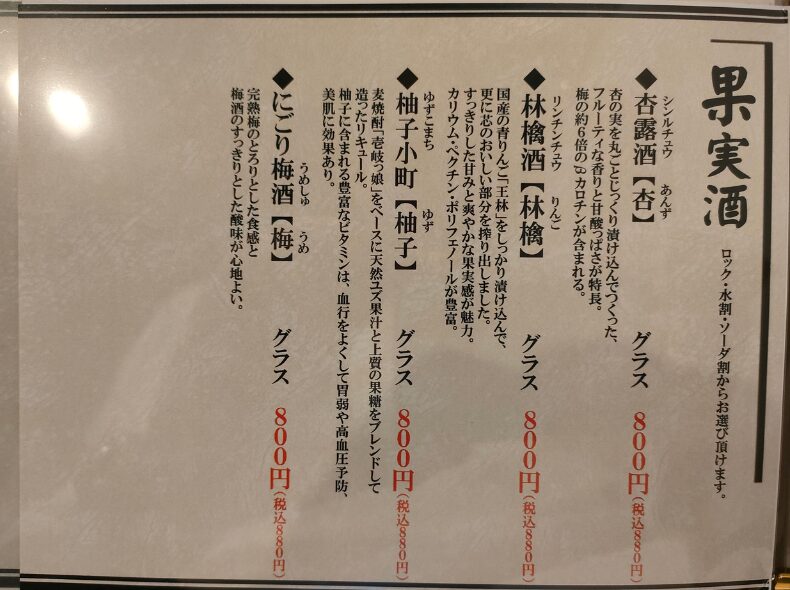 果実酒
ロック・水割・ソーダ割からお選び頂けます。
シンルチュウ あんず
◆杏露酒【杏】 グラス 800円(税込880円)
杏の実を丸ごとじっくり漬け込んでつくった、
フルーティな香りと甘酸っぱさが特長。
梅の約6倍のβカロチンが含まれる。
リンチンチュウ りんご
◆林檎酒【林檎】 グラス 800円(税込880円)
国産の青りんご「王林」をしっかり漬け込んで、
更に芯のおいしい部分を搾り出しました。
すっきりした甘みと爽やかな果実感が魅力。
カリウム・ペクチン・ポリフェノールが豊富。
ゆずこまち ゆず
◆柚子小町【柚子】 グラス 800円(税込880円)
麦焼酎「壱岐っ娘」をベースに天然ユズ果汁と上質の果糖をブレンドして
造ったリキュール。
柚子に含まれる豊富なビタミンは、血行をよくして胃弱や高血圧予防、
美肌に効果あり。
うめしゅ うめ
◆にごり梅酒【梅】 グラス 800円(税込880円)
完熟梅のとろりとした食感と
梅酒のすっきりとした酸味が心地よい。